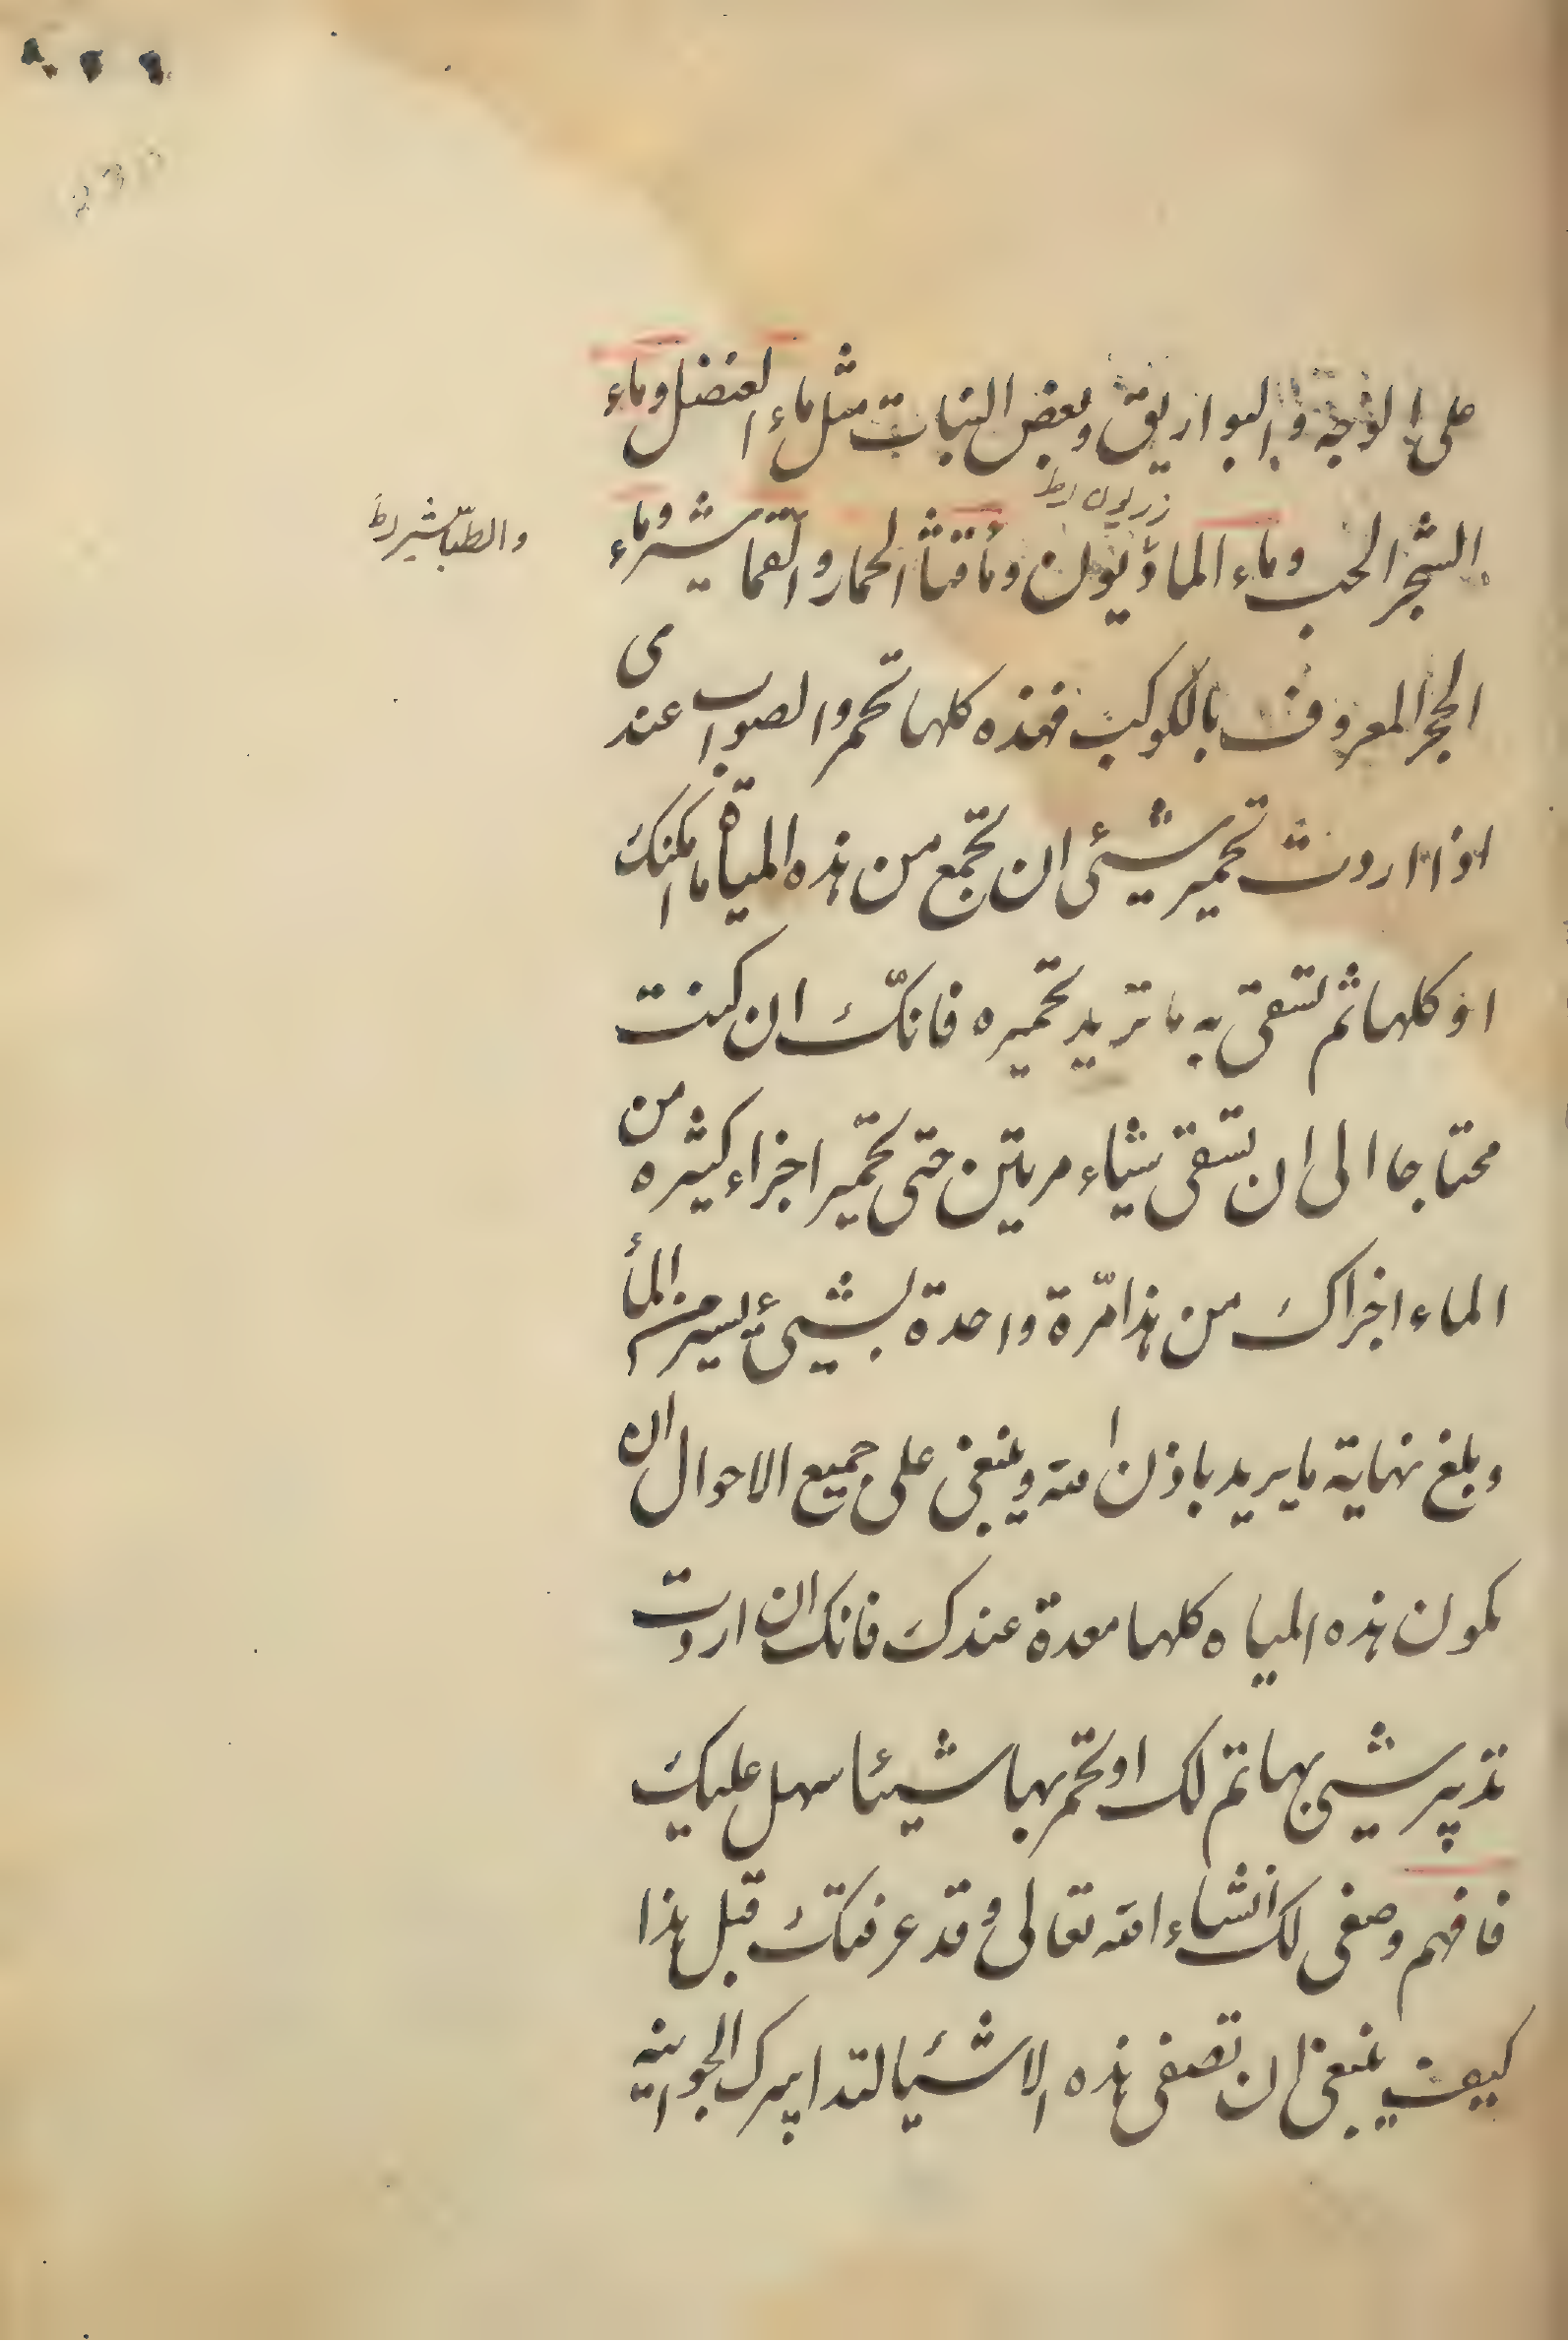 على الوجه والبواريق وبعض النبات مثل ماء العنصل وماء
زريون رط
الشجر الحب وماء الماذيون وماء قثأ الحمار والقماشير وماء
والطباشير رط
الحجر المعروف بالكوكب فهذه كلها تحمر والصواب عندى
اذا اردت تحمير شيئى ان تجمع من هذه المياة ما امكنك
او كلها ثم تسقى به ما تريد تحميره فانّك ان كنت
محتاجا الى ان تسقى شياء مرتين حتى تحمير اجزاء كثيره من
الماء اجزاك من هذا مرّة واحدة بشيئ يسير من المأ
وبلغ نهاية ما يريد باذن الله وينبغى على جميع الاحوال ان
يكون هذه المياه كلها معدة عندك فانك ان اردت
تدبير شى بها تم لك او تحمر بها شيئا سهل عليك
فافهم وصفى لك انشاء الله تعالى وقد عرفتك قبل هذا
كيف ينبغى ان تصفى هذه الاشيا لتدابيرك الجوانيه